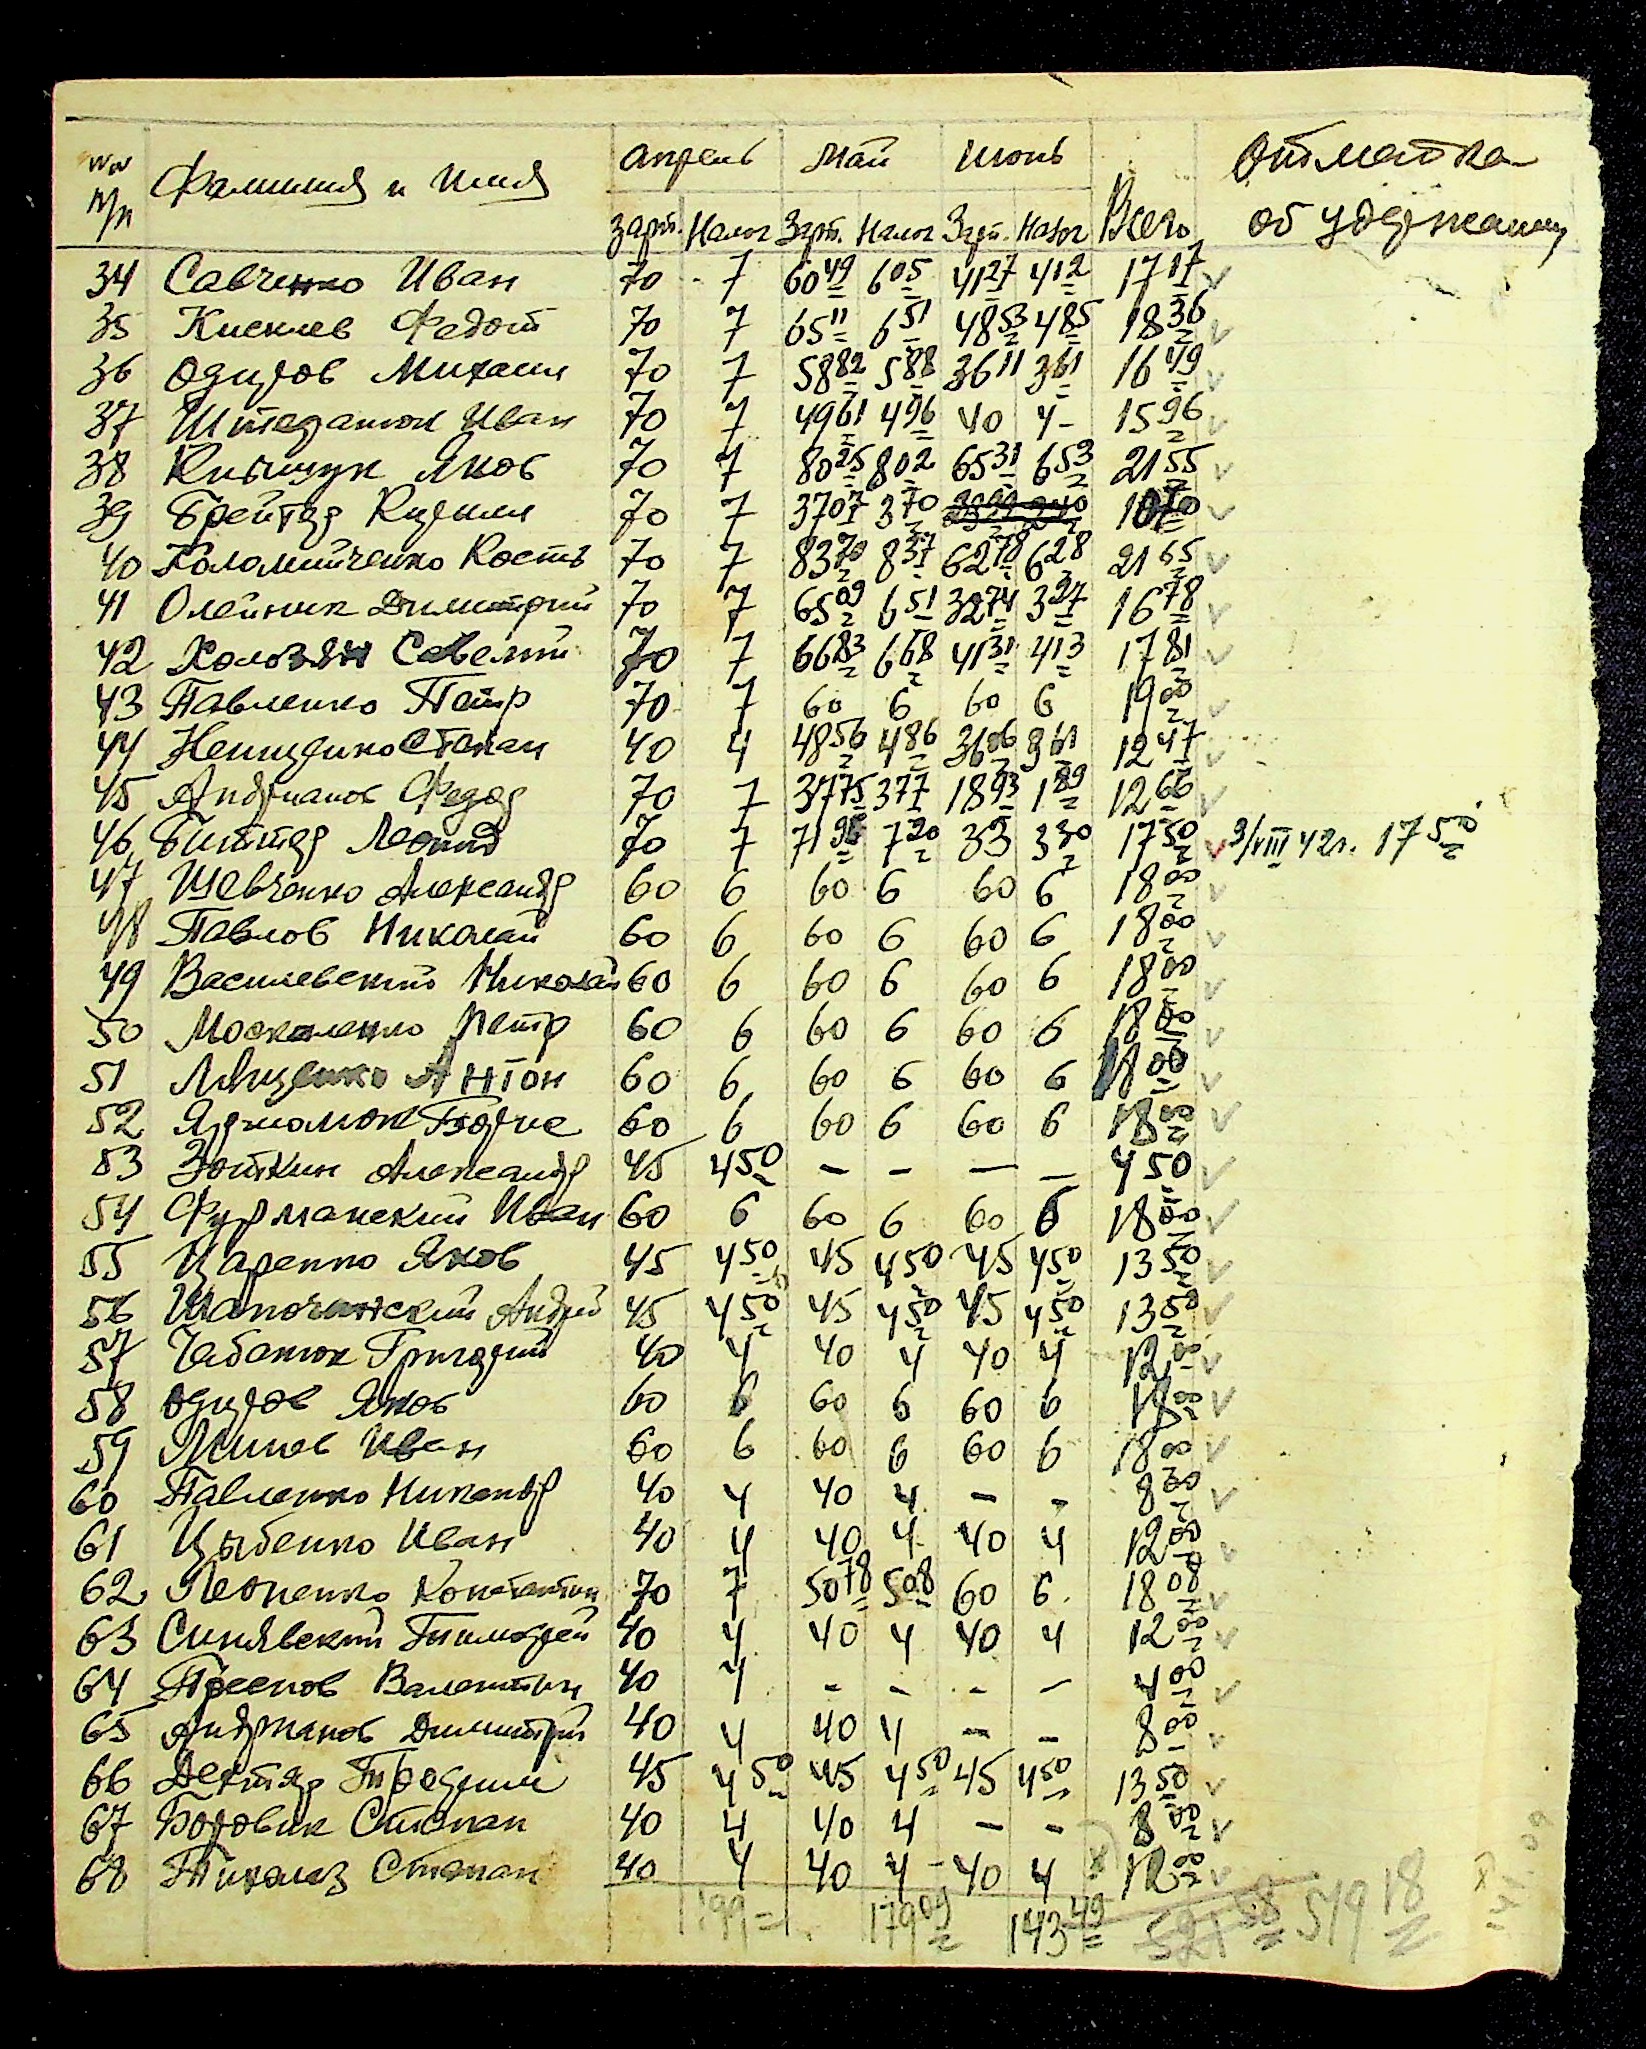 №№ п/п Фамилия и Имя Апрель Май Июнь Всего Отметка
зарп. Налог Зарп. Налог Зарп. Налог об удержании
34 Савченко Иван 70 7 60 49 6 05 41 27 4 12 17 17
35 Киселев Федот 70 7 65 11 6 51 48 53 4 85 18 36
36 Одуров Михаил 70 7 58 82 5 88 36 11 3 61 16 49
37 Иван 70 7 49 61 4 96 40 4 - 15 96
38 Яков 70 7 80 25 8 02 65 31 6 53 21 55
39 Брейтер Кирилл 70 7 37 07 3 70 10 70
40 Коломийченко Кость 70 7 83 70 8 37 62 78 6 28 21 65
41 Олейник Димитрий 70 7 65 09 6 51 32 74 3 27 16 78
42 Савелий 70 7 66 83 6 68 41 31 4 13 17 81
43 Павленко Петр 70 7 60 6 60 6 19 00
44 Степан 40 4 48 56 4 86 36 06 3 61 12 47
45 Андрианов Федор 70 7 37 75 3 77 18 93 1 89 12 66
46 Биттер Леонид 70 7 71 95 7 20 33 3 30 17 50 3/VIII 42г. 17 50
47 Шевченко Александр 60 6 60 6 60 6 18 00
48 Павлов Николай 60 6 60 6 60 6 18 00
49 Василевский Николай 60 6 60 6 60 6 18 00
50 Москаленко Петр 60 6 60 6 60 6 18 00
51 Антон 60 6 60 6 60 6 18 00
52 60 6 60 6 60 6 18 00
53 Зоткин Александр 45 4 50 - - - - 4 50
54 Фурманский Иван 60 6 60 6 60 6 18 00
55 Царенко Яков 45 4 50 45 4 50 45 4 50 13 50
56 Шапочанский Андрей 45 4 50 45 4 50 45 4 50 13 50
57 Чабанюк Григорий 40 4 40 4 40 4 12 00
58 Одуров Яков 60 6 60 6 60 6 18 00
59 Иван 60 6 60 6 60 6 18 00
60 Павленко Никандр 40 4 40 4 - - 8 00
61 Цыбенко Иван 40 4 40 4 40 4 12 00
62 Леоненко Константин 70 7 50 78 5 08 60 6 18 08
63 Синявский Тимофей 40 4 40 4 40 4 12 00
64 Валентин 40 4 - - - - 4 00
65 Андрианов Димитрий 40 4 40 4 - - 8 00
66 Дегтяр 45 4 50 45 4 50 45 4 50 13 50
67 Боровик Степан 40 4 40 4 - - 8 00
68 Степан 40 4 40 4 - 40 4 12 00
199 = 179 09 143 49 521 58 519 18